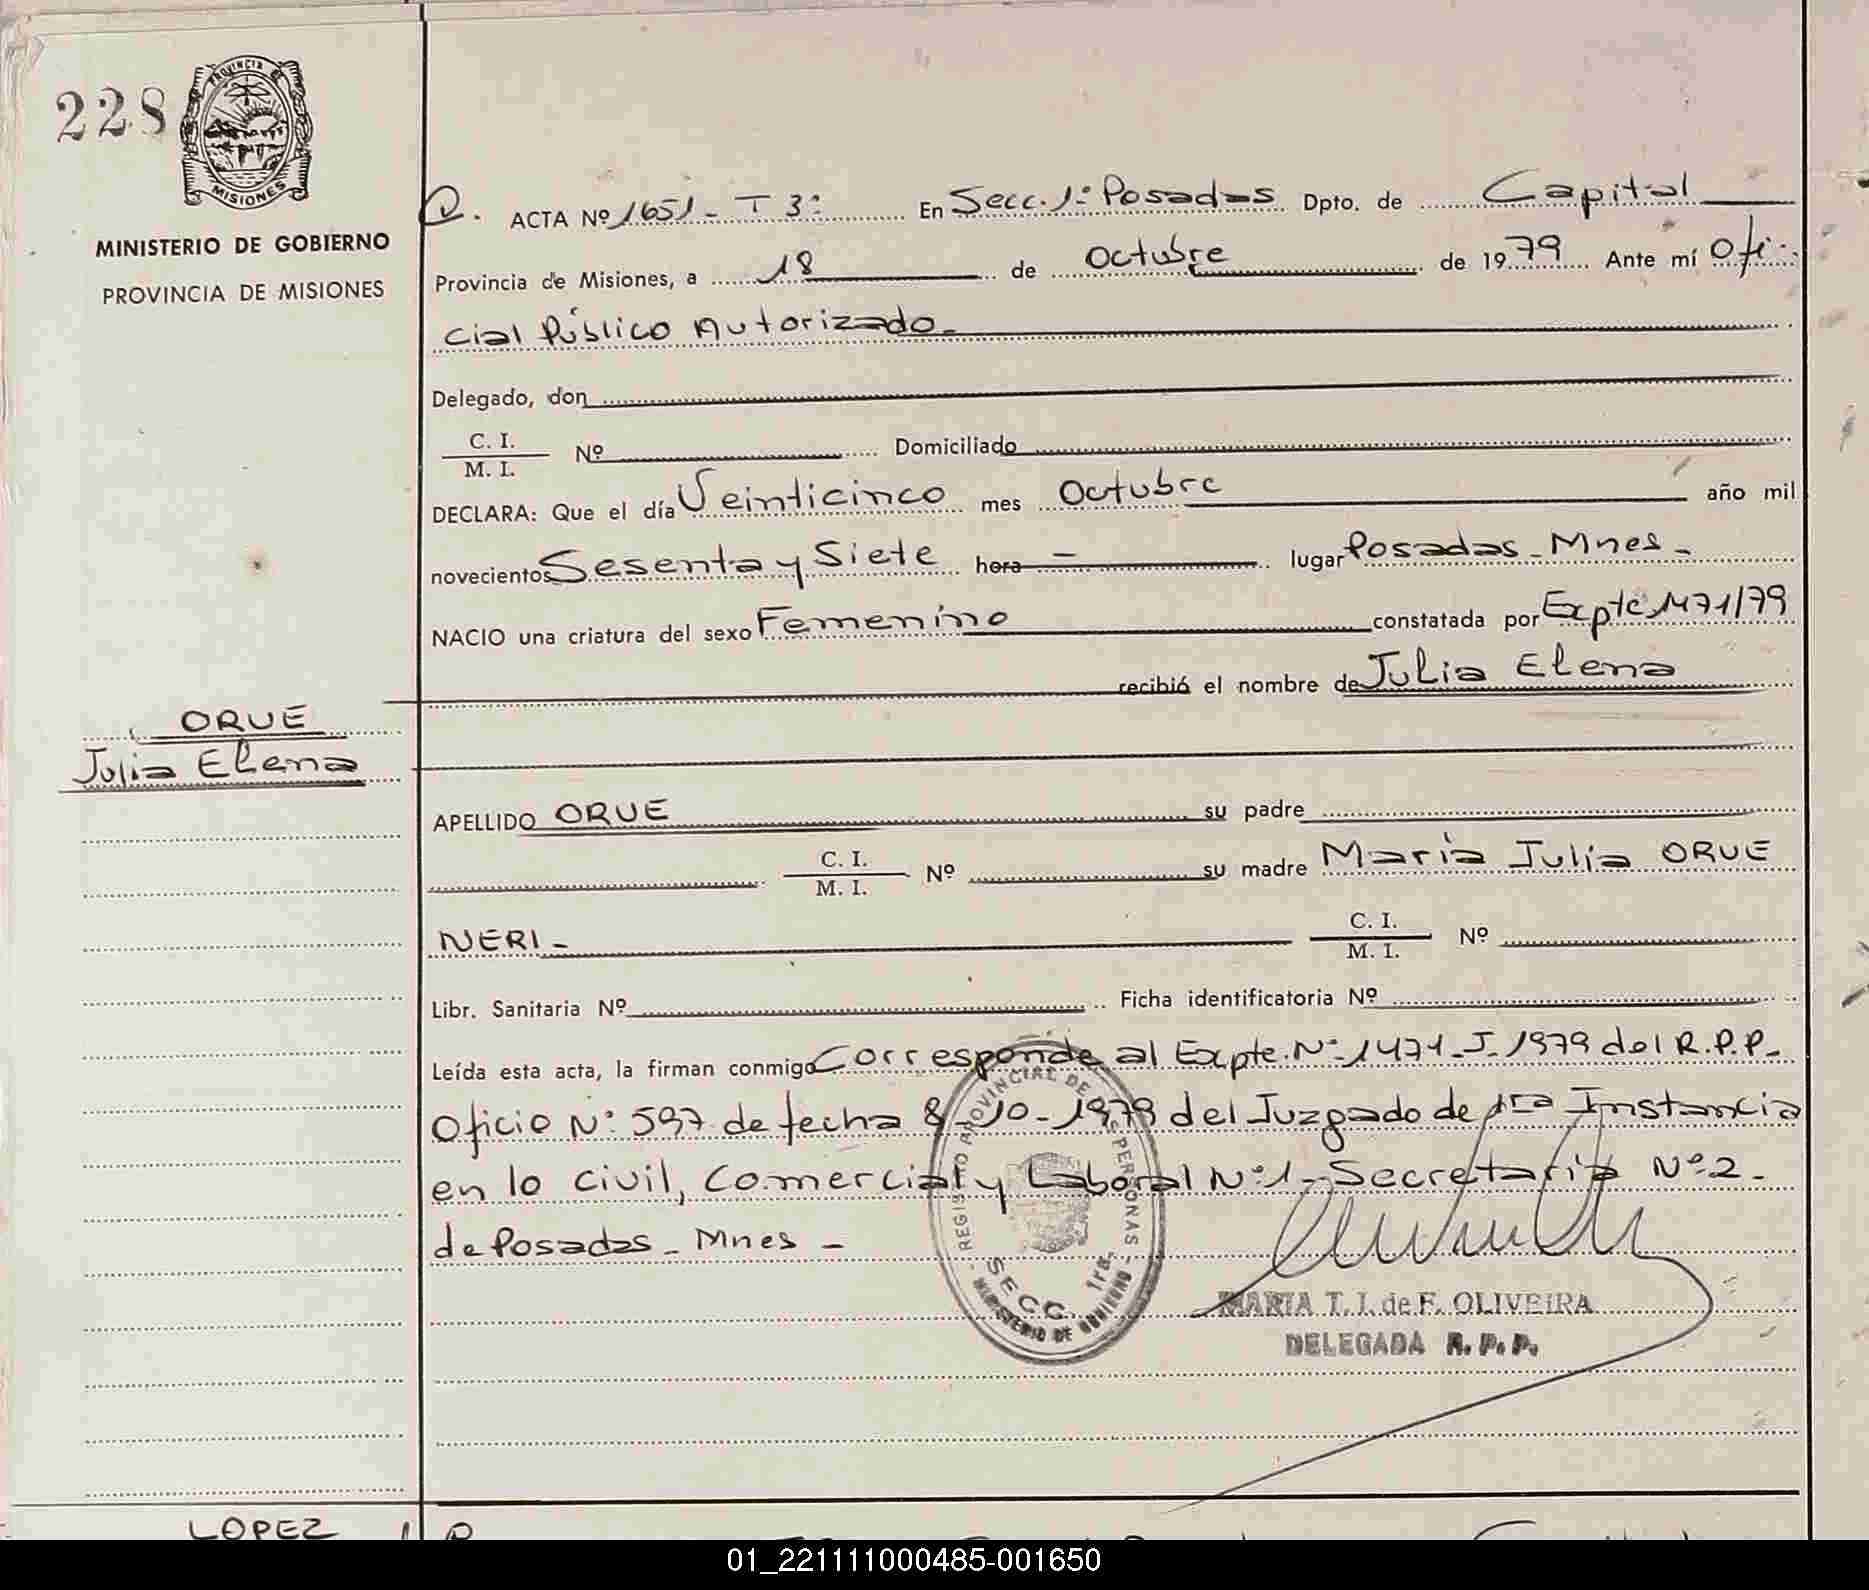 228
PROVINCIA DE
MISIONES
MINISTERIO DE GOBIERNO
PROVINCIA DE MISIONES
ORUE
Julia Elena
ACTA Nº 1651 - T 3º En Secc. 1º Posadas Dpto. de Capital
Provincia de Misiones, a 18 de Octubre de 1979 Ante mí Ofi-
cial Público Autorizado.
Delegado, don
C. I.
M. I. Nº Domiciliado
DECLARA: Que el día Veinticinco mes Octubre año mil
novecientos Sesenta y Siete hora - lugar Posadas - Mnes -
NACIO una criatura del sexo Femenino constatada por Expte 1471/79
recibió el nombre de Julia Elena
APELLIDO ORUE su padre
C. I.
M. I. Nº su madre María Julia ORUE
NERI - C. I.
M. I. Nº
Libr. Sanitaria Nº Ficha identificatoria Nº
Leída esta acta, la firman conmigo Corresponde al Expte. Nº 1471 - J - 1979 del R.P.P.-
Oficio Nº 597 de fecha 8-10-1979 del Juzgado de 1ra Instancia
en lo civil, Comercial y Laboral Nº 1 - Secretaría Nº 2 -
de Posadas - Mnes -
REGISTRO PROVINCIAL DE LAS PERSONAS
SECC. 1ra.
MINISTERIO DE GOBIERNO
MARIA T. I. de F. OLIVEIRA
DELEGADA R. P. P.
LOPEZ
01_221111000485-001650